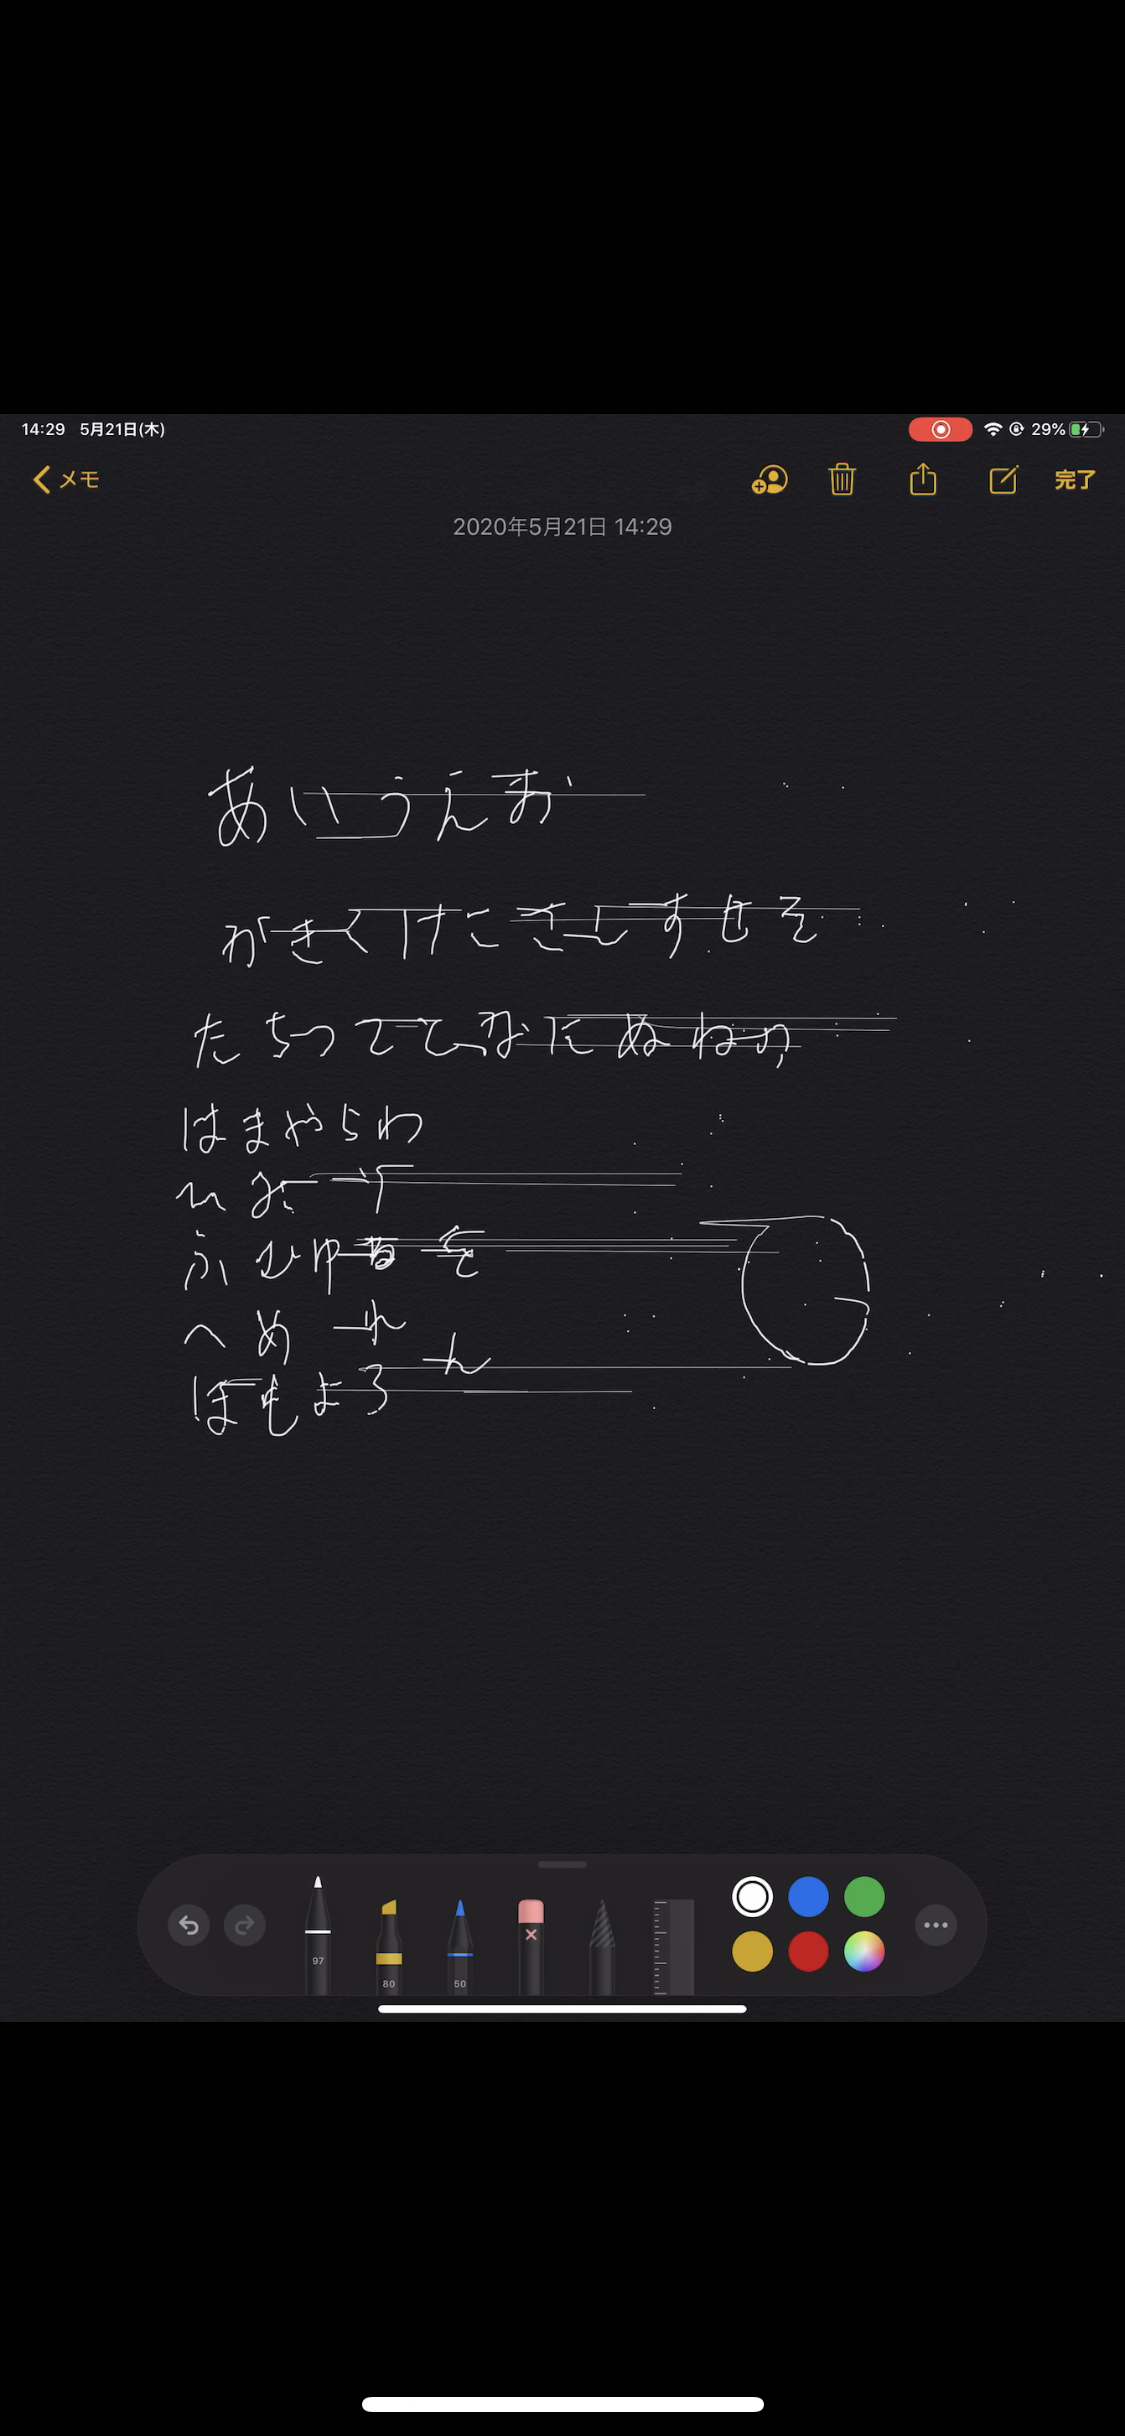 14:29 5月21日(木) 29%
メモ 完了
2020年5月21日 14:29
あいうえお
かきくけこさしすせそ
たちつてとなにぬねの
はまやらわ
ひみ り
ふむゆるを
へめ れ
ん
ほもよろ
97 80 50